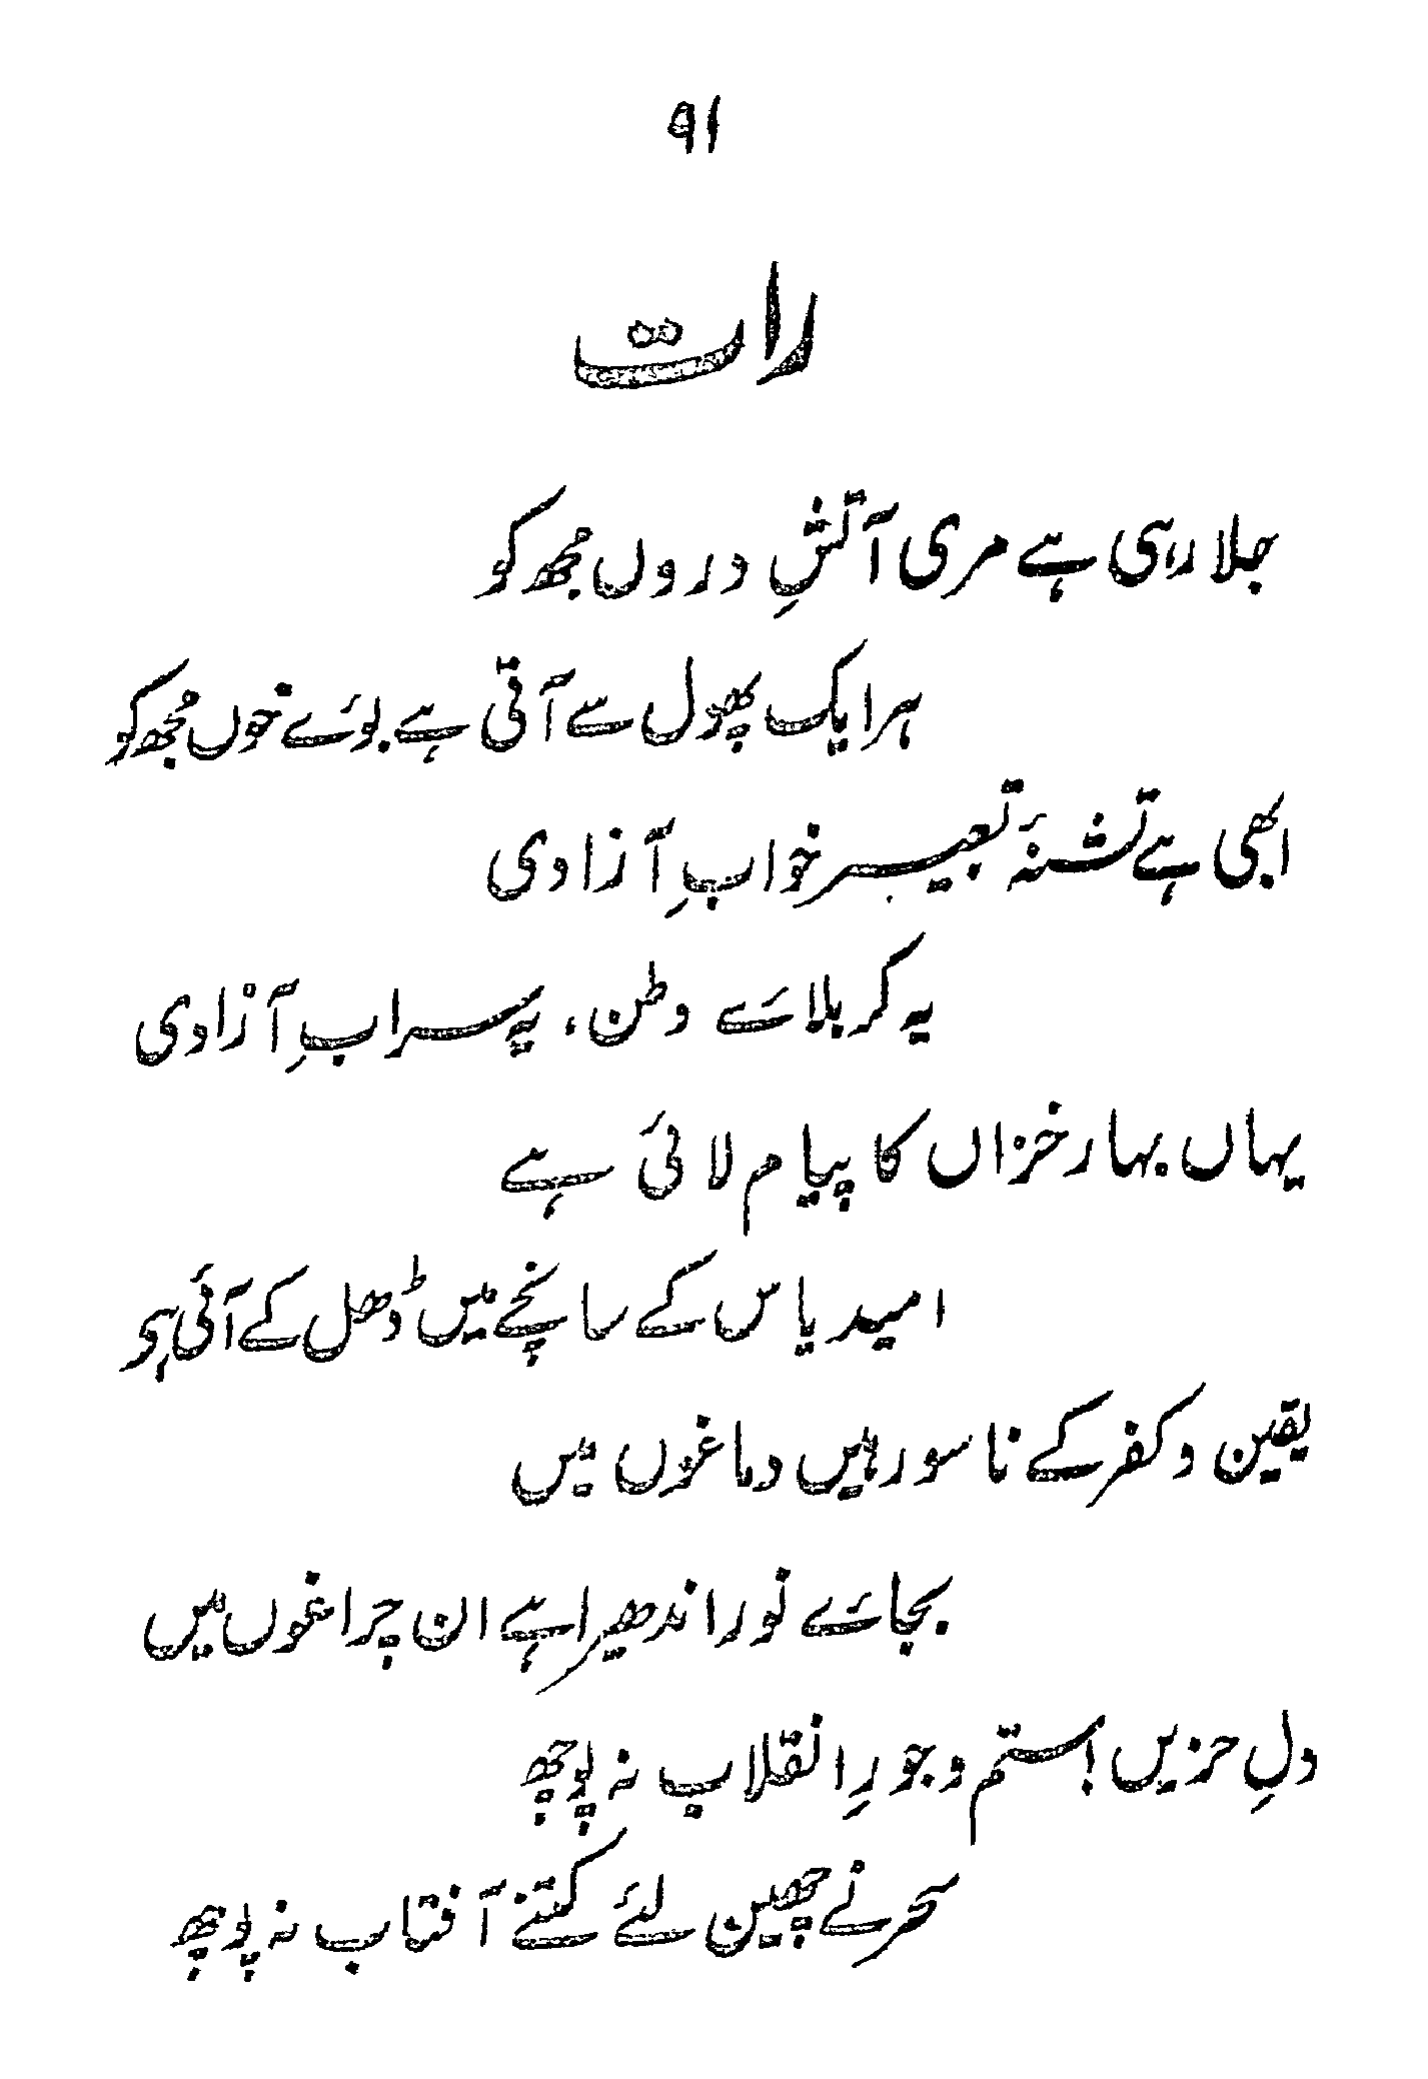 ۹۱
رات
جلا رہی ہے مری آتشِ دروں مجھ کو
ہر ایک پھول سے آتی ہے بوئے خوں مُجھ کو
ابھی ہے تشنۂ تعبیر خوابِ آزادی
یہ کربلائے وطن، یہ سرابِ آزادی
یہاں بہار خزاں کا پیام لائی ہے
امید یاس کے سانچے میں ڈھل کے آئی ہے
یقین و کفر کے ناسور ہیں دماغوں میں
بجائے نور اندھیرا ہے ان چراغوں میں
دلِ حزیں! ستم و جورِ انقلاب نہ پوچھ
سحر نے چھین لئے کتنے آفتاب نہ پوچھ